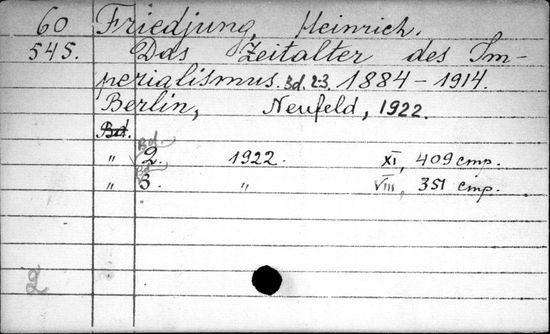 60 Friedjung, Heinrich.
545. Das Zeitalter des Im-
perialismus. Bd. 2-3. 1884-1914.
Berlin, Neufeld, 1922.
Bd.
Bd.
" 2. 1922. XI, 409 стр.
Bd.
" 3. " VIII, 351 стр.
2